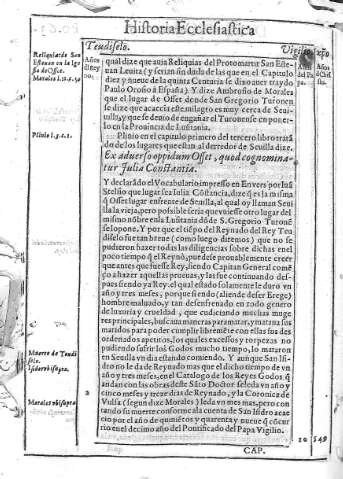 Historia Ecclesiastica
Teudiselo.
Vigilio
Reliquias de San
Esteuan en la Igle
sia de Osset.
Morales l.11.c.50
Años
de
qual dize que auia Reliquias del Protomartir San Este-
uan Leuita (y serian sin duda de las que en el Capitulo
diez y nueue de la quinta Centuria se dixo auer traydo
Paulo Orosio à España) Y dize Ambrosio de Morales
que el lugar de Osset donde San Gregorio Turonen-
se dize que acaecia este milagro es muy cerca de Seui-
lla, y que se deuio de engañar el Turonense en poner-
lo en la Prouincia de Lusitania.
Plinio l.3.c.1.
Plinio en el capitulo primero del tercero libro trata
do de los lugares que estan al derredor de Seuilla dize.
Ex aduerso oppidum Osset, quod cognomina-
tur Julia Constantia.
Y declarādo el Vocabulario impresso en Envers por Iuā
Stelsio que lugar sea Iulia Cōstācia, dize q̃ es la misma
q̃ Osset lugar enfrente de Seuilla, al qual oy llaman Seui
lla la vieja, pero posible seria que vuiesse otro lugar del
mismo nōbre en la Lusitania dōde S. Gregorio Turonē
se lo pone. Y por que el tiēpo del Reynado del Rey Teu
diselo fue tan breue (como luego diremos) que no se
pudieron hazer todas las diligencias sobre dichas en el
poco tiempo q̃ el Reynò, puedese prouablemente creer
que antes que fuesse Rey, siendo Capitan General come
ço a hazer aquestas prueuas, y las fue continuando des-
pues siendo ya Rey: el qual estado solamente le duro vn
año y tres meses, porque siendo (aliende de ser Erege)
hombre maluado, y tan desenfrenado en todo genero
de luxuria y crueldad, que cudiciando muchas muge
res principales, buscaua maneras para matar, y mataua sus
maridos para poder cumplir libremente con ellas sus des
ordenados apetitos, los quales excessos y torpezas no
pudiendo sufrir los Godos mucho tiempo, lo mataron
en Seuilla vn dia estando comiendo. Y aunque San Isi-
dro no le da de Reynado mas que el dicho tiempo de vn
año y tres meses, en el Catologo de los Reyes Godos q̃
andan con las obras deste Sāto Doctor se le da vn año y
cinco meses y trece dias de Reynado, y la Coronica de
Vulsa (segun dize Morales) le da vn mes mas, pero con
tando su muerte conforme a la cuenta de San Isidro acae
cio por el año de quiniētos y quarenta y nueue q̃ cōcur
rio en el decimo año del Pontificado del Papa Vigilio.
Muerte de Teudi
selo.
Isidoro vbi supra.
Morales vbi supra
2
10
549
CAP.